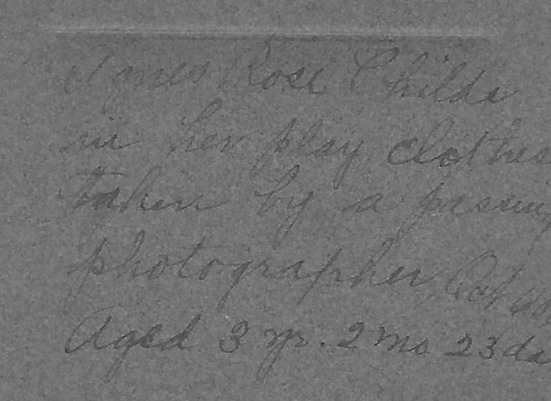 Agnes Rose Childs
in her play clothes
taken by a passing
photographer Oct
Aged 3 yr. 2 mo 23 da